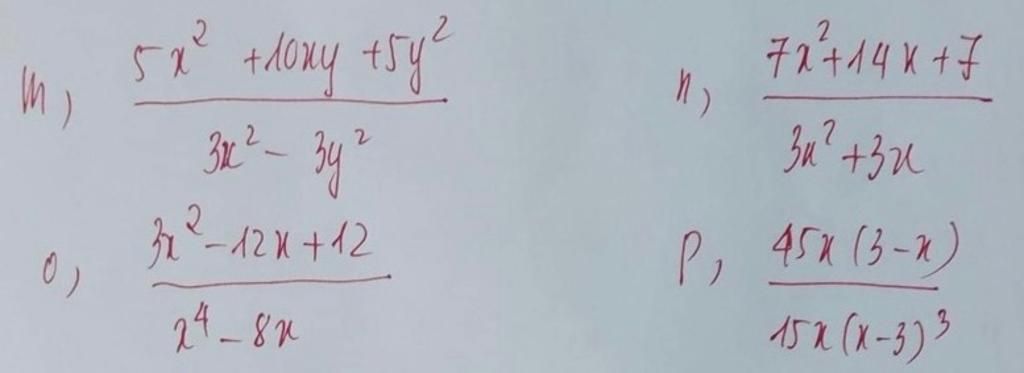 m, 5x² + 10xy + 5y² / 3x² - 3y²
n, 7x² + 14x + 7 / 3x² + 3x
o, 3x² - 12x + 12 / x⁴ - 8x
p, 45x(3-x) / 15x(x-3)³